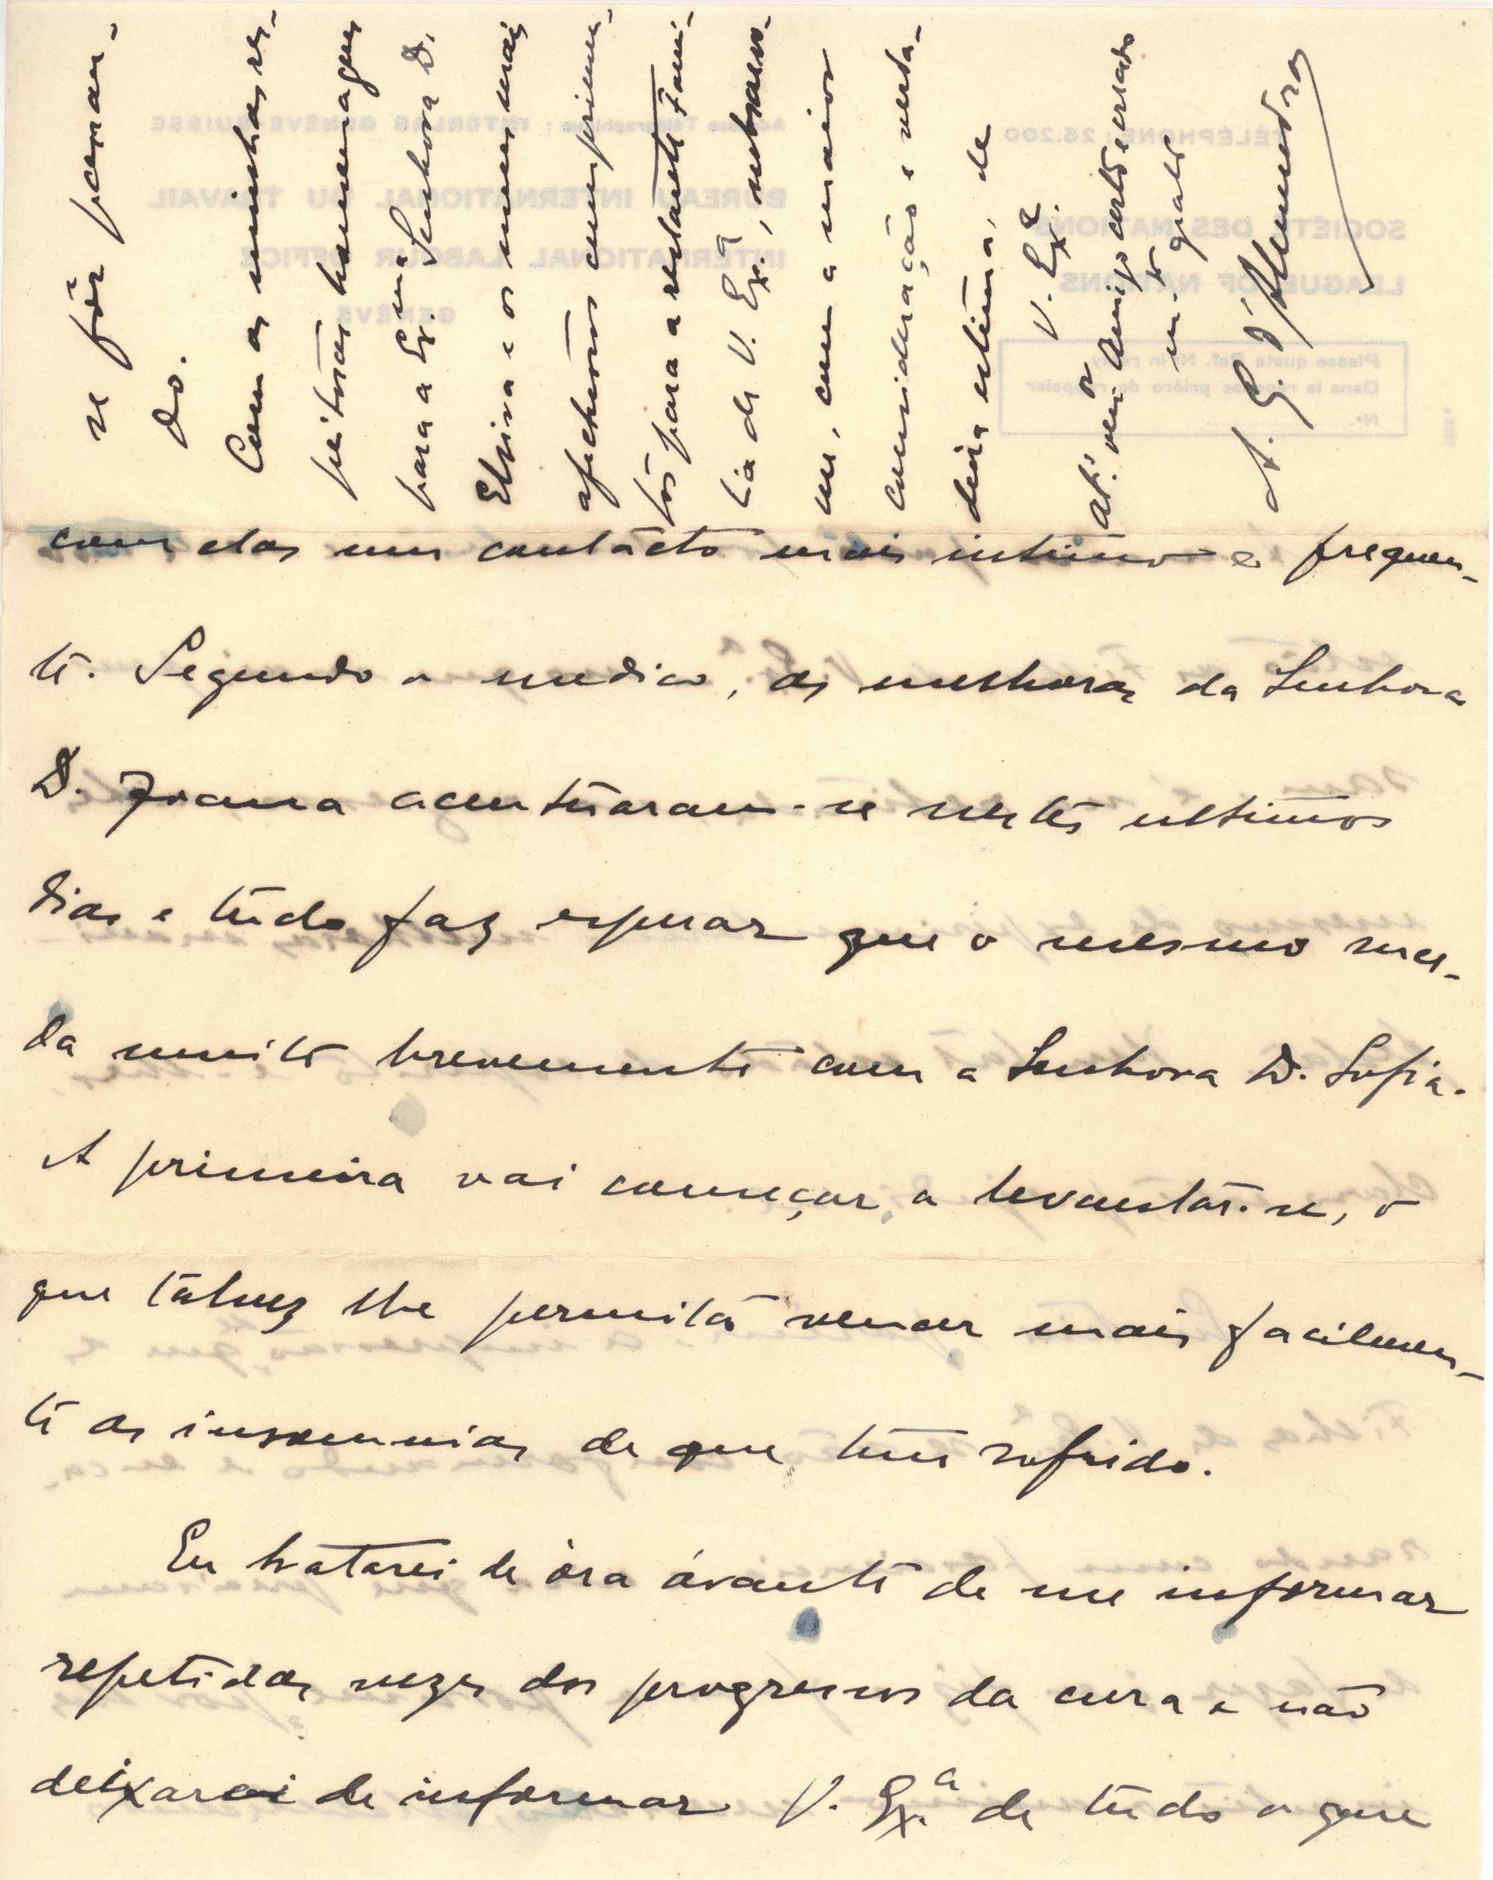 com elas um contácto mais intimo e frequen-
te. Segundo o medico, as melhoras da Senhora
D. Joana acentuaram-se nestes ultimos
dias e tudo faz esperar que o mesmo suce-
da muito brevemente com a Senhora D. Sofia.
A primeira vai começar a levantar-se, o
que talvez lhe permita vencer mais facilmen-
te as insomnias de que tem sofrido.
Eu tratarei de óra ávante de me informar
repetidas vezes dos progressos da cura e não
deixarei de informar V. Ex.ª de tudo o que
se fôr passan-
do.
Com as minhas res-
peitosas homenagens
para a Ex.ma Senhora D.
Elvira e os meus mais
afectuosos cumprimen-
tos para a restante Fami-
lia de V. Ex.ª, subscrevo-
me, com a maior
consideração e verda-
deira estima, de
V. Ex.ª
at.º ven.or Amigo certo e criado
m.to grato
A. G. d'Almendra
TÉLÉPHONE: 26.200
SOCIÉTÉ DES NATIONS
LEAGUE OF NATIONS
BUREAU INTERNATIONAL DU TRAVAIL
INTERNATIONAL LABOUR OFFICE
GENÈVE